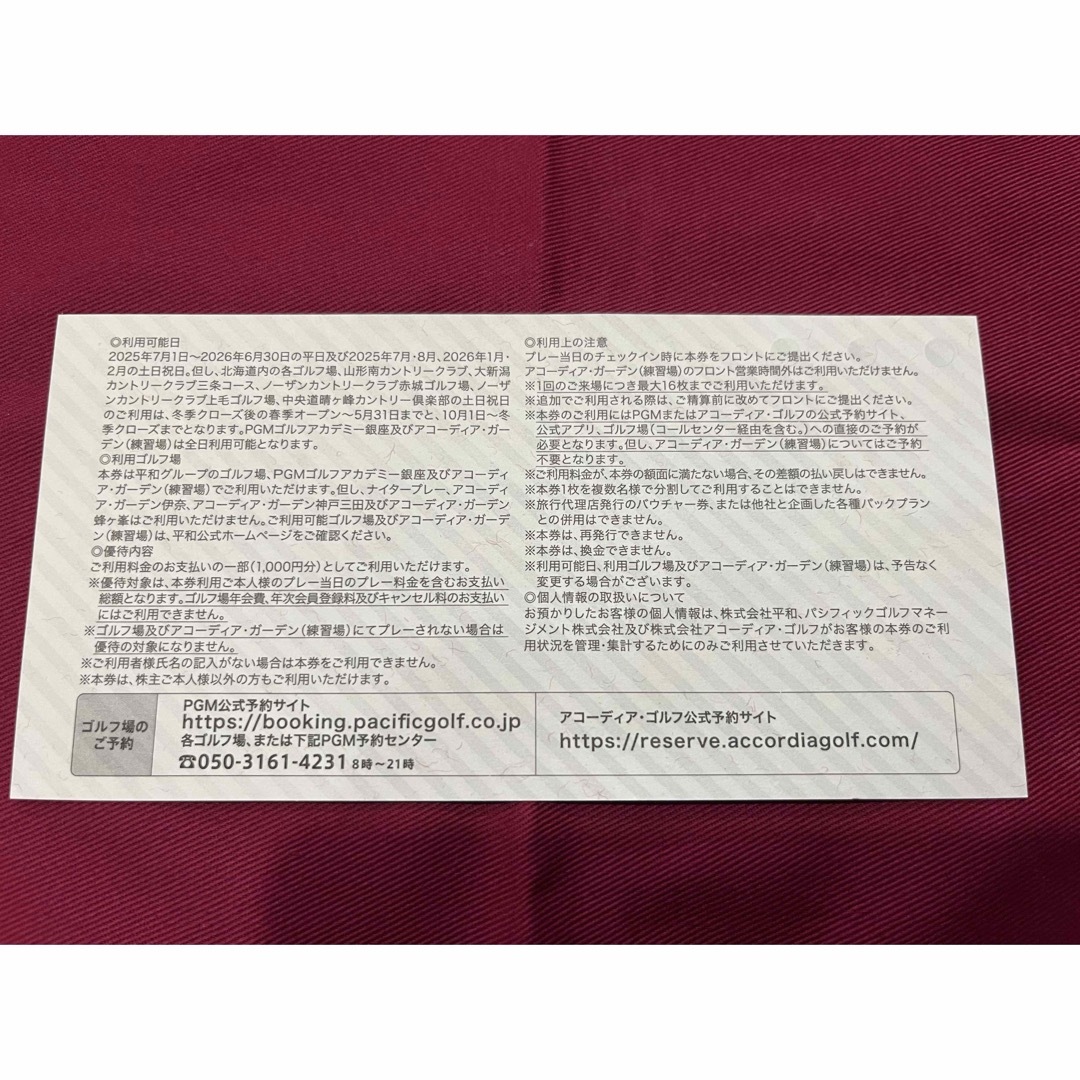 ◎利用可能日
2025年7月1日～2026年6月30日の平日及び2025年7月・8月、2026年1月・
2月の土日祝日。但し、北海道内の各ゴルフ場、山形南カントリークラブ、大新潟
カントリークラブ三条コース、ノーザンカントリークラブ赤城ゴルフ場、ノーザ
ンカントリークラブ上毛ゴルフ場、中央道晴ヶ峰カントリー倶楽部の土日祝日
のご利用は、冬季クローズ後の春季オープン～5月31日までと、10月1日～冬
季クローズまでとなります。PGMゴルフアカデミー銀座及びアコーディア・ガー
デン(練習場)は全日利用可能となります。
◎利用ゴルフ場
本券は平和グループのゴルフ場、PGMゴルフアカデミー銀座及びアコーディ
ア・ガーデン(練習場)でご利用いただけます。但し、ナイタープレー、アコーディ
ア・ガーデン伊奈、アコーディア・ガーデン神戸三田及びアコーディア・ガーデン
蜂ヶ峯はご利用いただけません。ご利用可能ゴルフ場及びアコーディア・ガーデ
ン(練習場)は、平和公式ホームページをご確認ください。
◎優待内容
ご利用料金のお支払いの一部(1,000円分)としてご利用いただけます。
※優待対象は、本券利用ご本人様のプレー当日のプレー料金を含むお支払い
総額となります。ゴルフ場年会費、年次会員登録料及びキャンセル料のお支払い
にはご利用できません。
※ゴルフ場及びアコーディア・ガーデン(練習場)にてプレーされない場合は
優待の対象になりません。
※ご利用者様氏名の記入がない場合は本券をご利用できません。
※本券は、株主ご本人様以外の方もご利用いただけます。
◎利用上の注意
プレー当日のチェックイン時に本券をフロントにご提出ください。
アコーディア・ガーデン(練習場)のフロント営業時間外はご利用いただけません。
※1回のご来場につき最大16枚までご利用いただけます。
※追加でご利用される際は、ご精算前に改めてフロントにご提出ください。
※本券のご利用にはPGMまたはアコーディア・ゴルフの公式予約サイト、
公式アプリ、ゴルフ場(コールセンター経由を含む。)への直接のご予約が
必要となります。但し、アコーディア・ガーデン(練習場)についてはご予約
不要となります。
※ご利用料金が、本券の額面に満たない場合、その差額の払い戻しはできません。
※本券1枚を複数名様で分割してご利用することはできません。
※旅行代理店発行のバウチャー券、または他社と企画した各種パックプラン
との併用はできません。
※本券は、再発行できません。
※本券は、換金できません。
※利用可能日、利用ゴルフ場及びアコーディア・ガーデン(練習場)は、予告なく
変更する場合がございます。
◎個人情報の取扱いについて
お預かりしたお客様の個人情報は、株式会社平和、パシフィックゴルフマネー
ジメント株式会社及び株式会社アコーディア・ゴルフがお客様の本券のご利
用状況を管理・集計するためにのみご利用させていただきます。
ゴルフ場の
ご予約
PGM公式予約サイト
https://booking.pacificgolf.co.jp
各ゴルフ場、または下記PGM予約センター
☎050-3161-4231 8時～21時
アコーディア・ゴルフ公式予約サイト
https://reserve.accordiagolf.com/